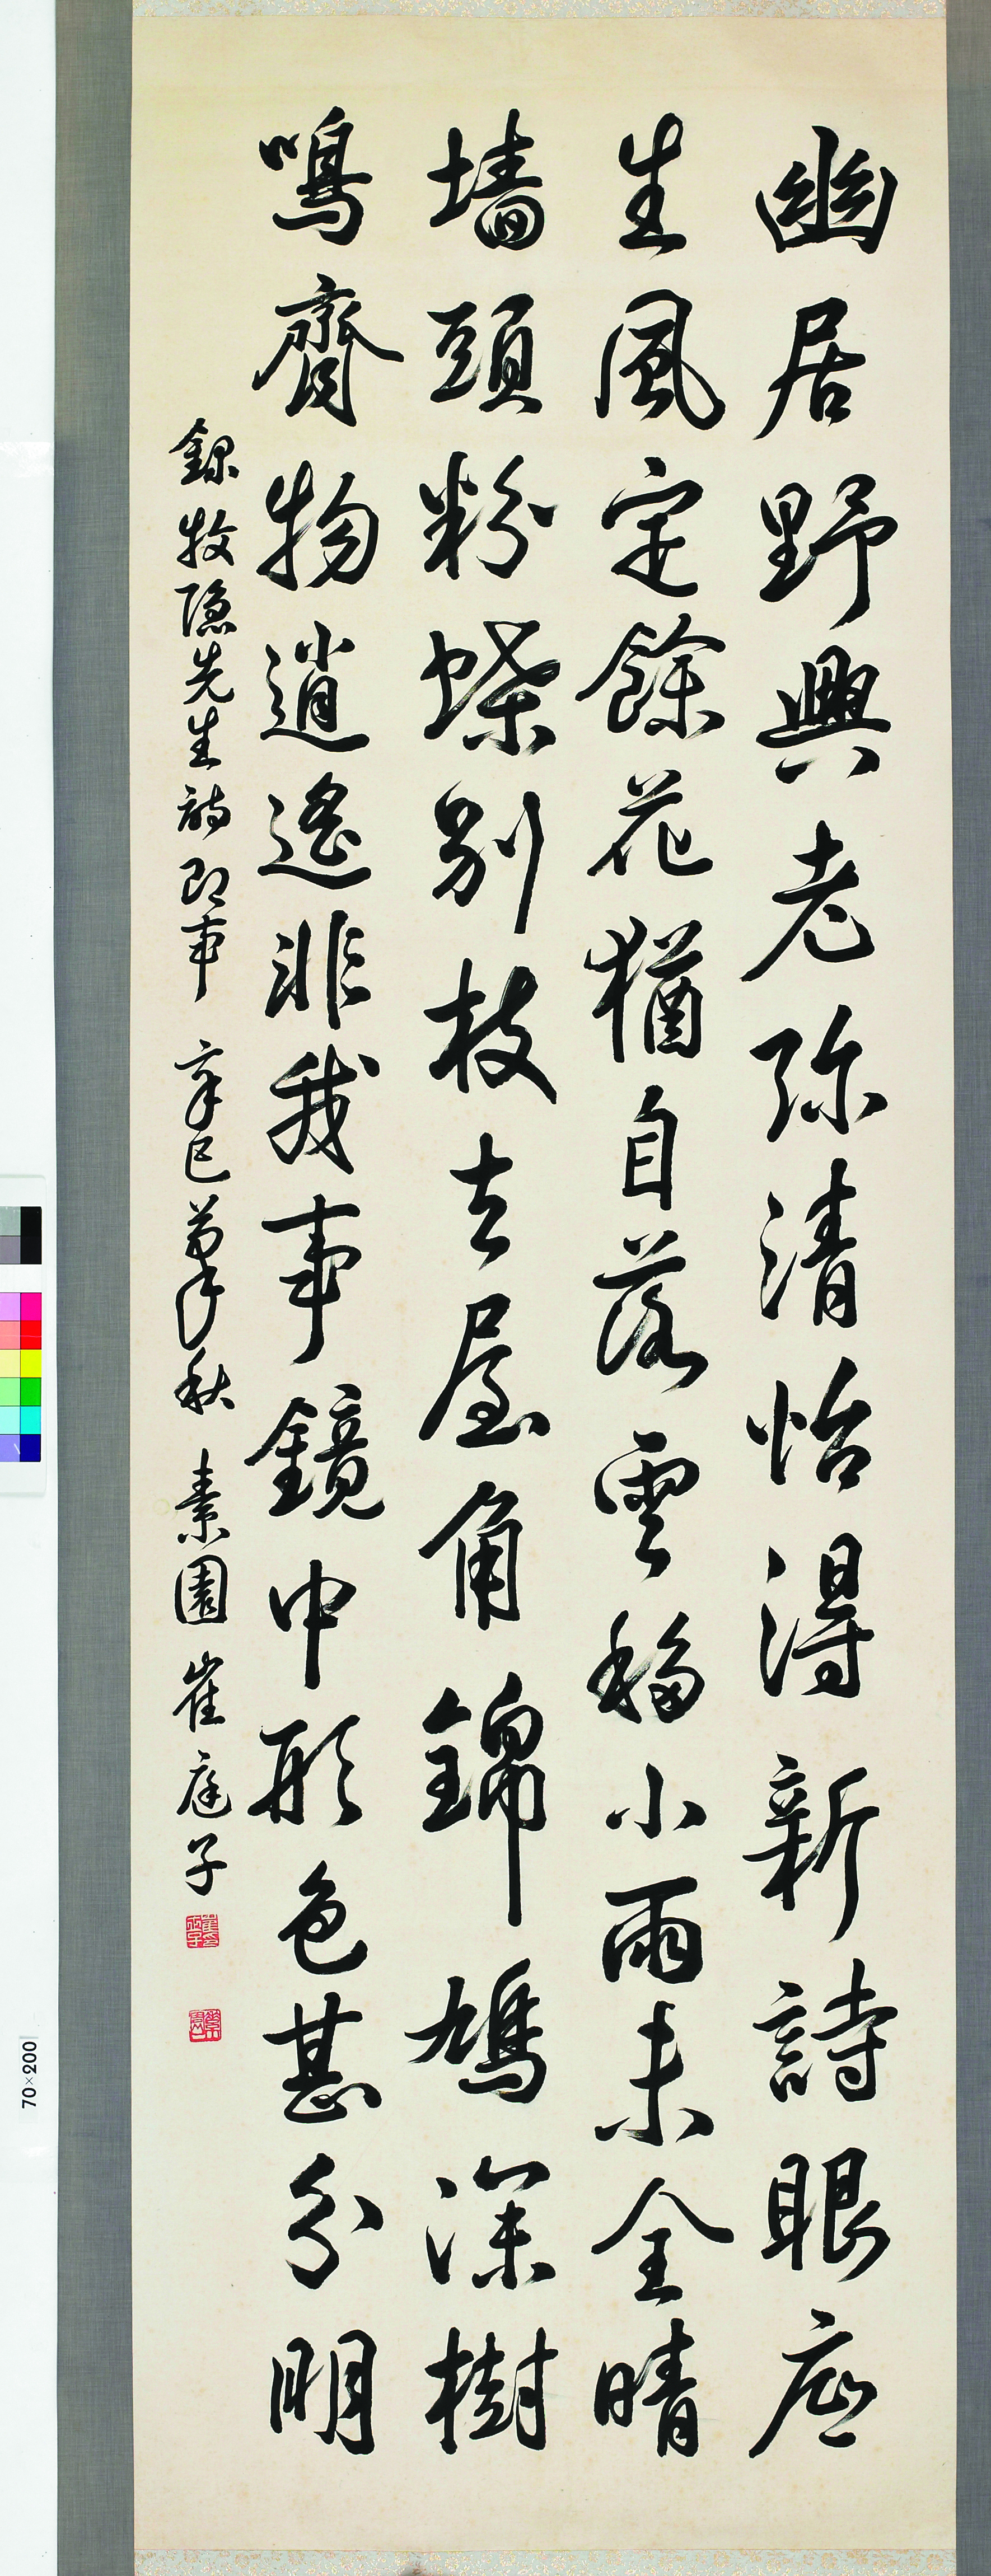 幽居野興老弥清恰得新詩眼底
生風定餘花猶自落雲移小雨未全晴
墙頭粉蝶別枝去屋角錦鳩深樹
鳴齊物逍遙非我事鏡中形色甚分明
錄牧隱先生詩即事 辛巳肇秋 素園 崔庭子
70×200